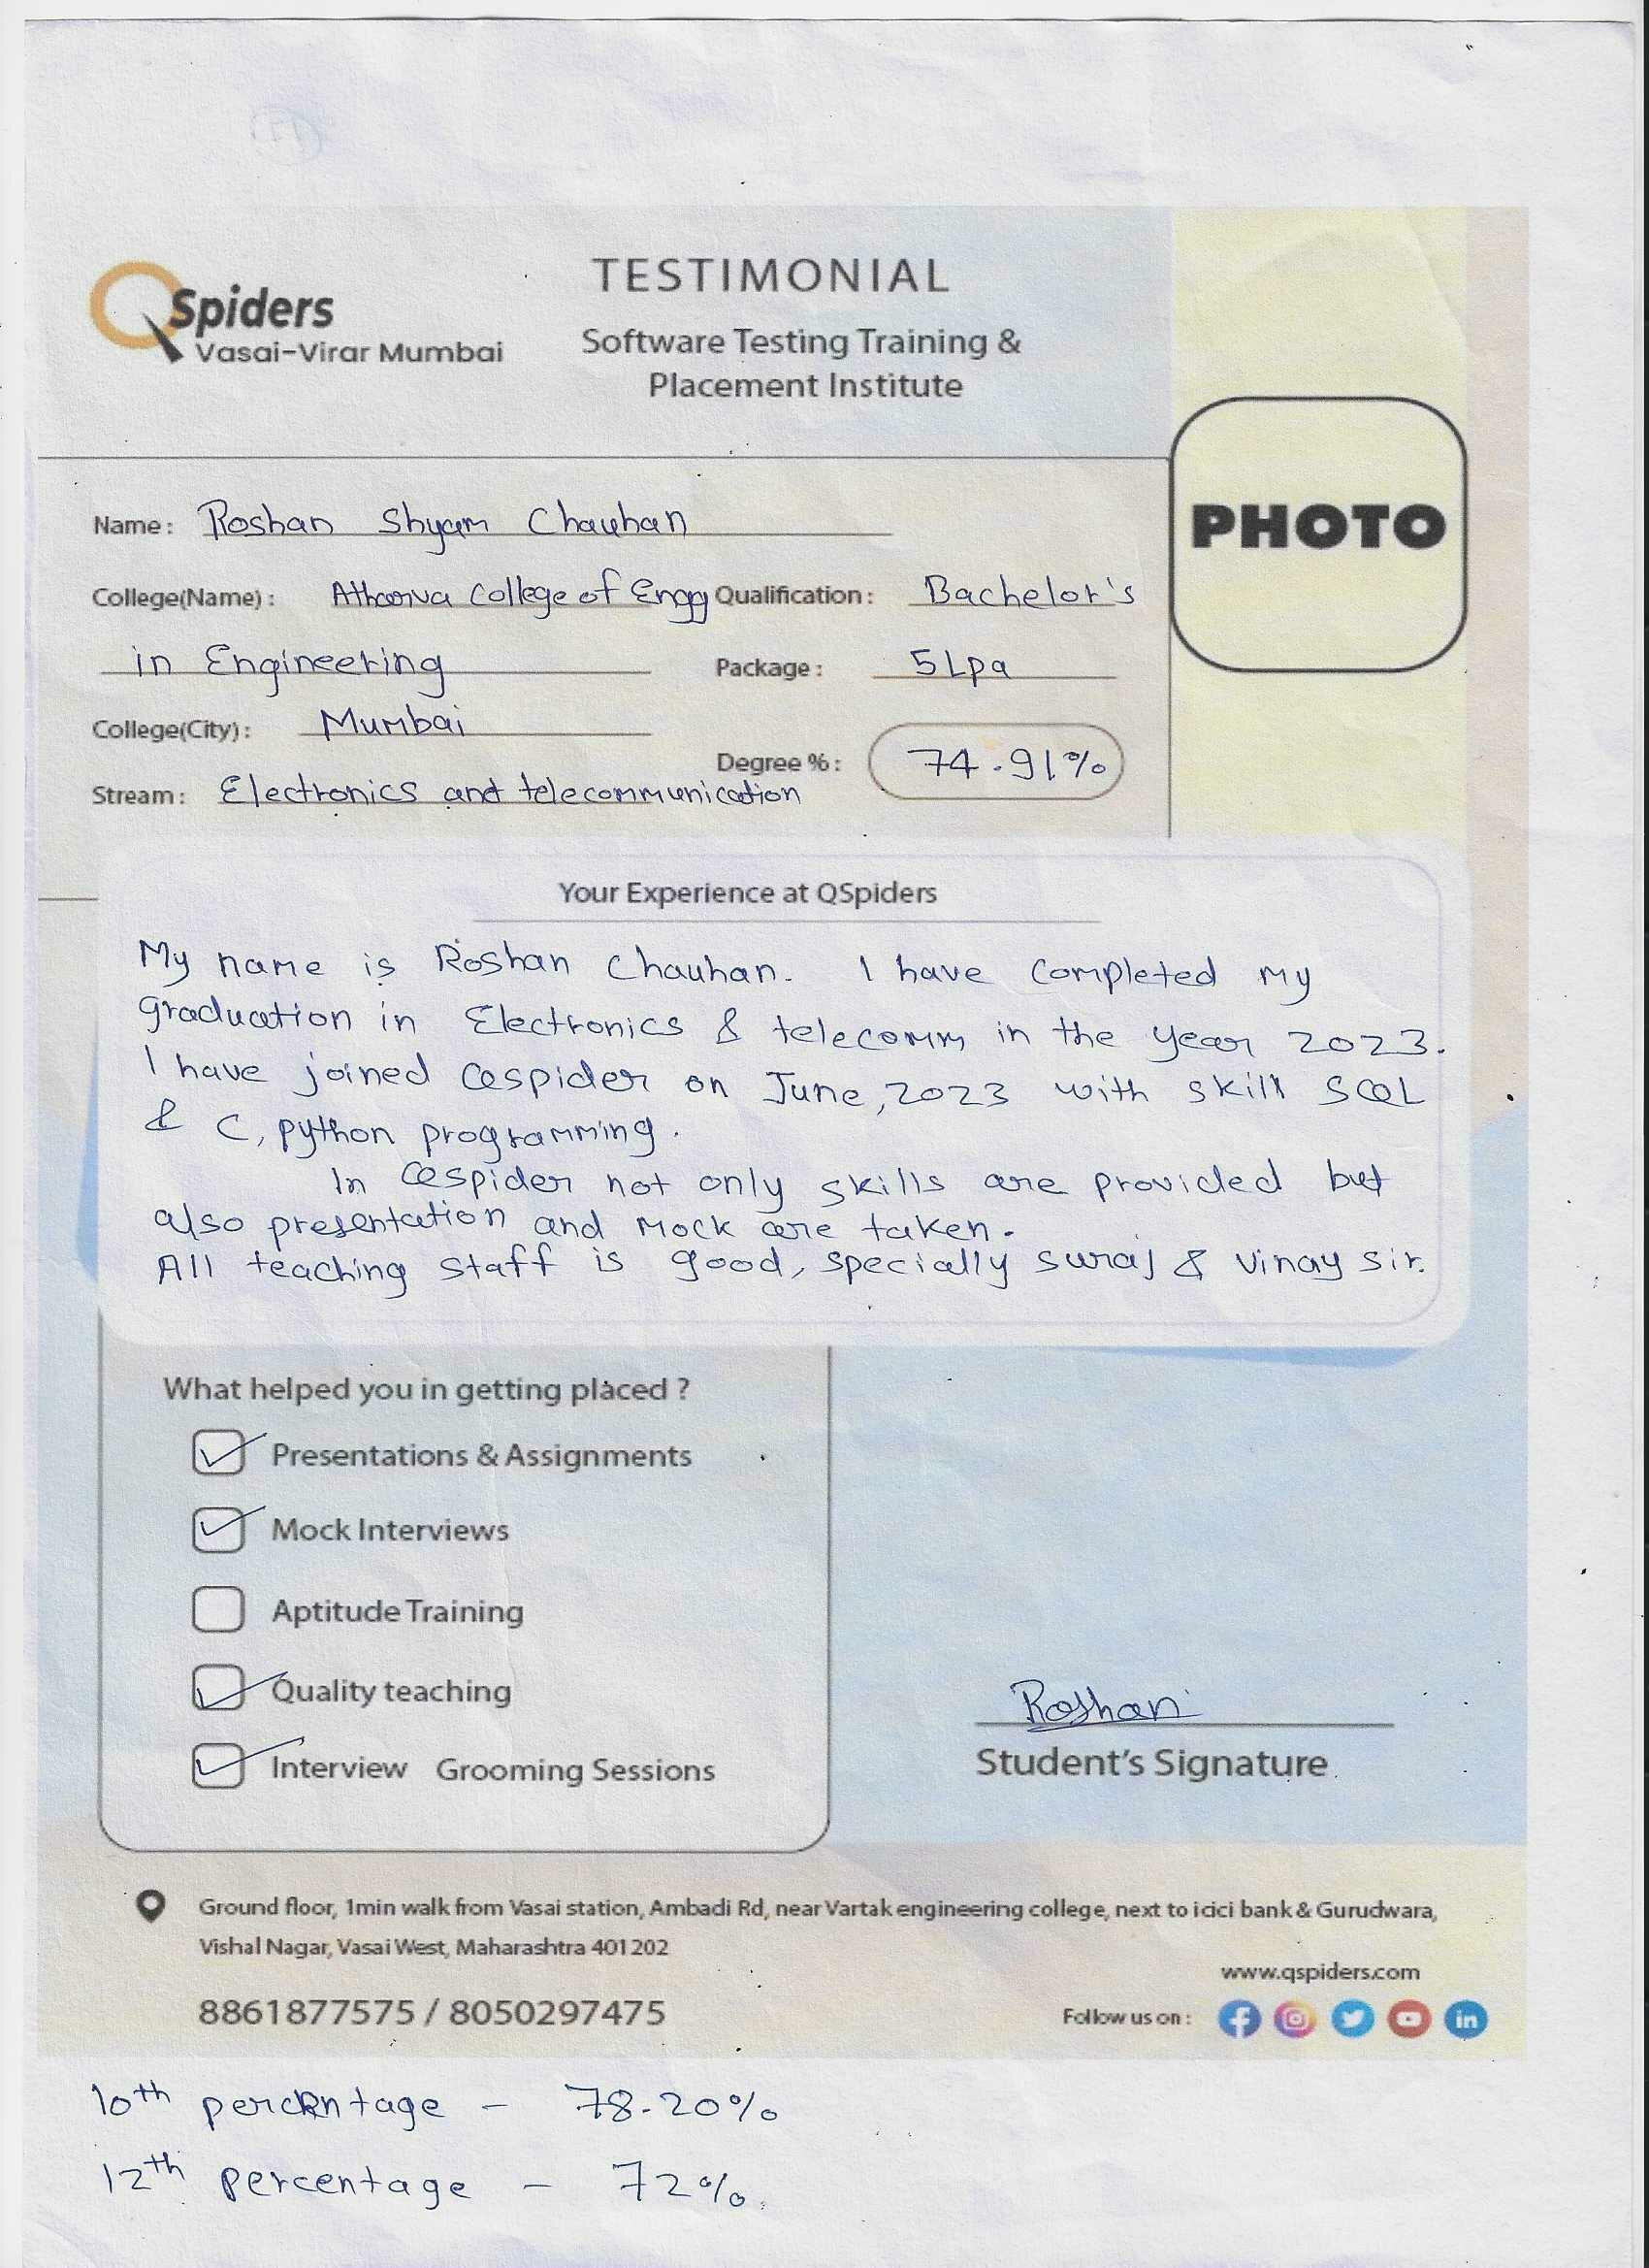 Spiders
Vasai-Virar Mumbai
TESTIMONIAL
Software Testing Training &
Placement Institute
PHOTO
Name: Roshan Shyam Chauhan
College(Name): Atharva College of Engg Qualification: Bachelor's
in Engineering Package: 5Lpa
College(City): Mumbai
Degree %: 74.91%
Stream: Electronics and telecommunication
Your Experience at QSpiders
My name is Roshan Chauhan. I have completed my
graduation in Electronics & telecomm in the year 2023.
I have joined Qspider on June, 2023 with skill SQL
& C, python programming.
In Qspider not only skills are provided but
also presentation and Mock are taken.
All teaching staff is good, specially suraj & vinay sir.
What helped you in getting placed ?
Presentations & Assignments
Mock Interviews
Aptitude Training
Quality teaching
Interview Grooming Sessions
Roshan
Student's Signature
Ground floor, 1min walk from Vasai station, Ambadi Rd, near Vartak engineering college, next to icici bank & Gurudwara,
Vishal Nagar, Vasai West, Maharashtra 401202
www.qspiders.com
8861877575 / 8050297475
Follow us on :
10th percentage - 78.20%
12th percentage - 72%.